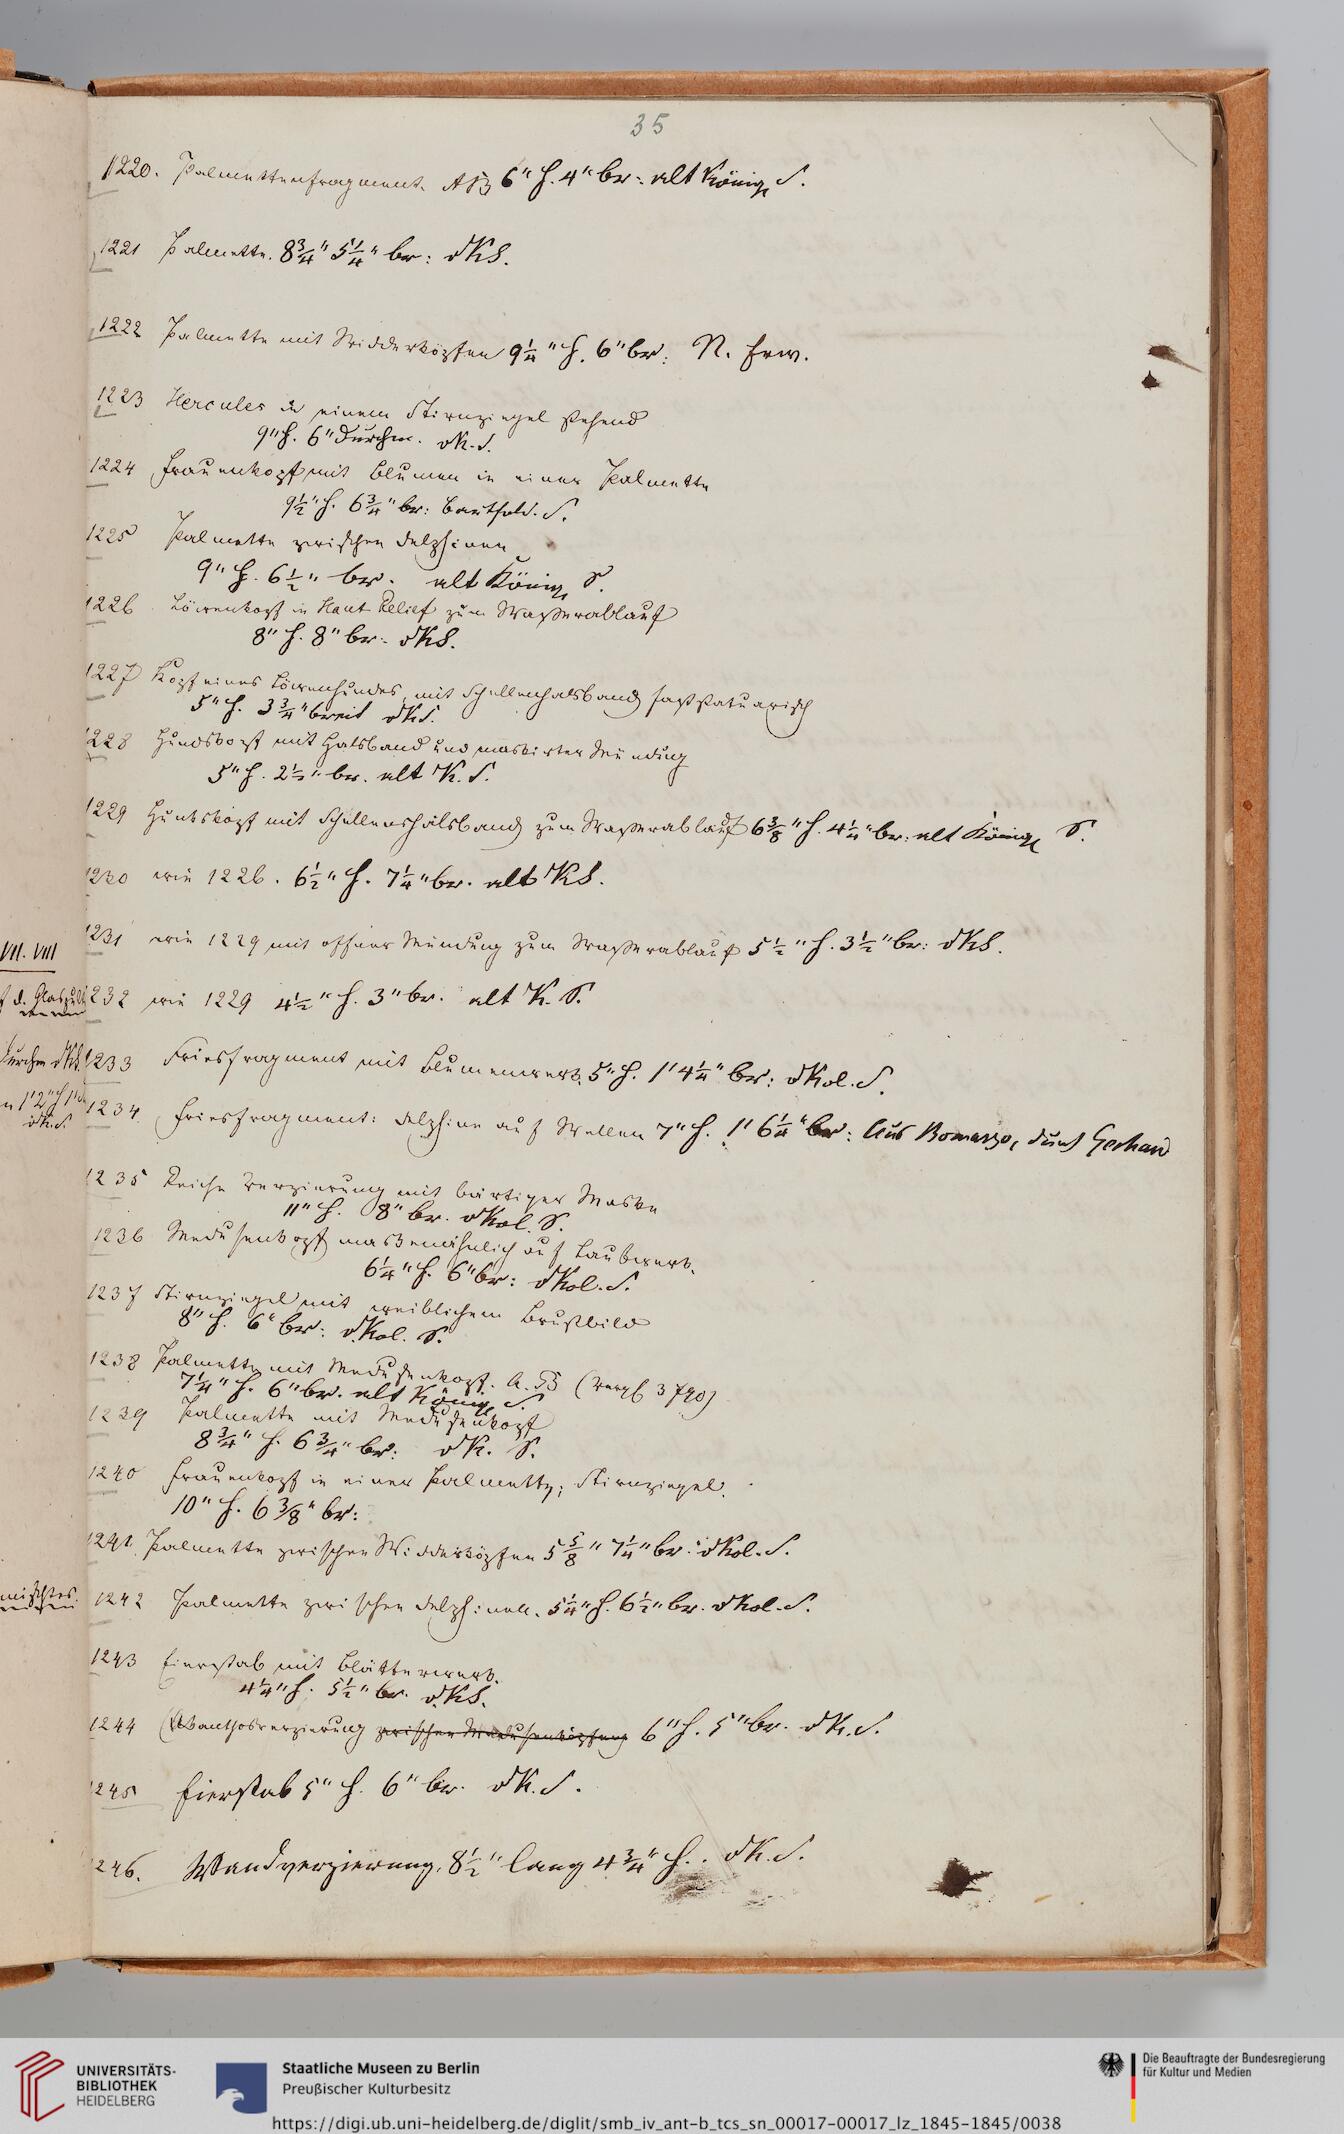 35
1220. Palmettenfragment. AB 6" h. 4" br: alt Königl S.
1221 Palmette. 8 3/4" 5 1/4" br: dKS.
1222 Palmette mit Widderköpfen 9 1/4" h. 6" br: N. Erw.
1223 Hercules in einem Stirnziegel stehend
9" h. 6" durchm. dK.S.
1224 Frauenkopf mit Blumen in einer Palmette
9 1/2" h. 6 3/4" br: Barthold. S.
1225 Palmette zwischen Delphinen
9" h. 6 1/2" br. alt Königl S.
1226 Löwenkopf in Haut Relief zum Waßerablauf
8" h. 8" br: dKS.
1227 Kopf eines Löwenhundes mit Schellenhalsband fast statuarisch
5" h. 3 3/4" breit dKS.
1228 Hundskopf mit Halsband und maskirter Mündung
5" h. 2 1/2" br. alt K. S.
1229 Hundskopf mit Schellenhalsband zum Waßerablauf 6 3/8" h. 4 1/4" br: alt Königl S.
1230 wie 1226. 6 1/2" h. 7 1/4" br. alt KS.
1231 wie 1229 mit offner Mündung zum Waßerablauf 5 1/2" h. 3 1/2" br: dKS.
1232 wie 1229 4 1/2" h. 3" br. alt K. S.
1233 Friesfragment mit Blumenwerk. 5" h. 1' 4 1/4" br: dKol. S.
1234 Friesfragment: Delphine auf Wellen 7" h. 1' 6 1/4" br: Aus Bomarzo, durch Gerhard
1235 Reiche Verzierung mit bärtiger Maske
11" h. 8" br. dKol. S.
1236 Medusenkopf maskenähnlich auf Laubwerk.
6 1/4" h. 6" br: dKol. S.
1237 Stirnziegel mit weiblichem Brustbild
8" h. 6" br: dKol. S.
1238 Palmette mit Medusenkopf. A. B (vergl 3790)
7 1/4" h. 6" br. alt Königl S
1239 Palmette mit Medusenkopf
8 3/4" h. 6 3/4" br: dK. S.
1240 Frauenkopf in einer Palmette, Stirnziegel.
10" h. 6 3/8" br:
1241 Palmette zwischen Widderköpfen 5 5/8" 7 1/4" br: dKol. S.
1242 Palmette zwischen Delphinen. 5 1/4" h. 6 1/2" br. dKol. S.
1243 Eierstab mit Blätterwerk.
4 1/4" h. 5 1/2" br. dKS.
1244 Akanthosverzierung zwischen Medusenköpfen 6" h. 5" br. dK. S.
1245 Eierstab 5" h. 6" br. dK. S.
1246. Wandverzierung, 8 1/2" lang 4 3/4" h.. dK. S.
VII. VIII
UNIVERSITÄTS-
BIBLIOTHEK
HEIDELBERG
Staatliche Museen zu Berlin
Preußischer Kulturbesitz
https://digi.ub.uni-heidelberg.de/diglit/smb_iv_ant-b_tcs_sn_00017-00017_lz_1845-1845/0038
Die Beauftragte der Bundesregierung
für Kultur und Medien